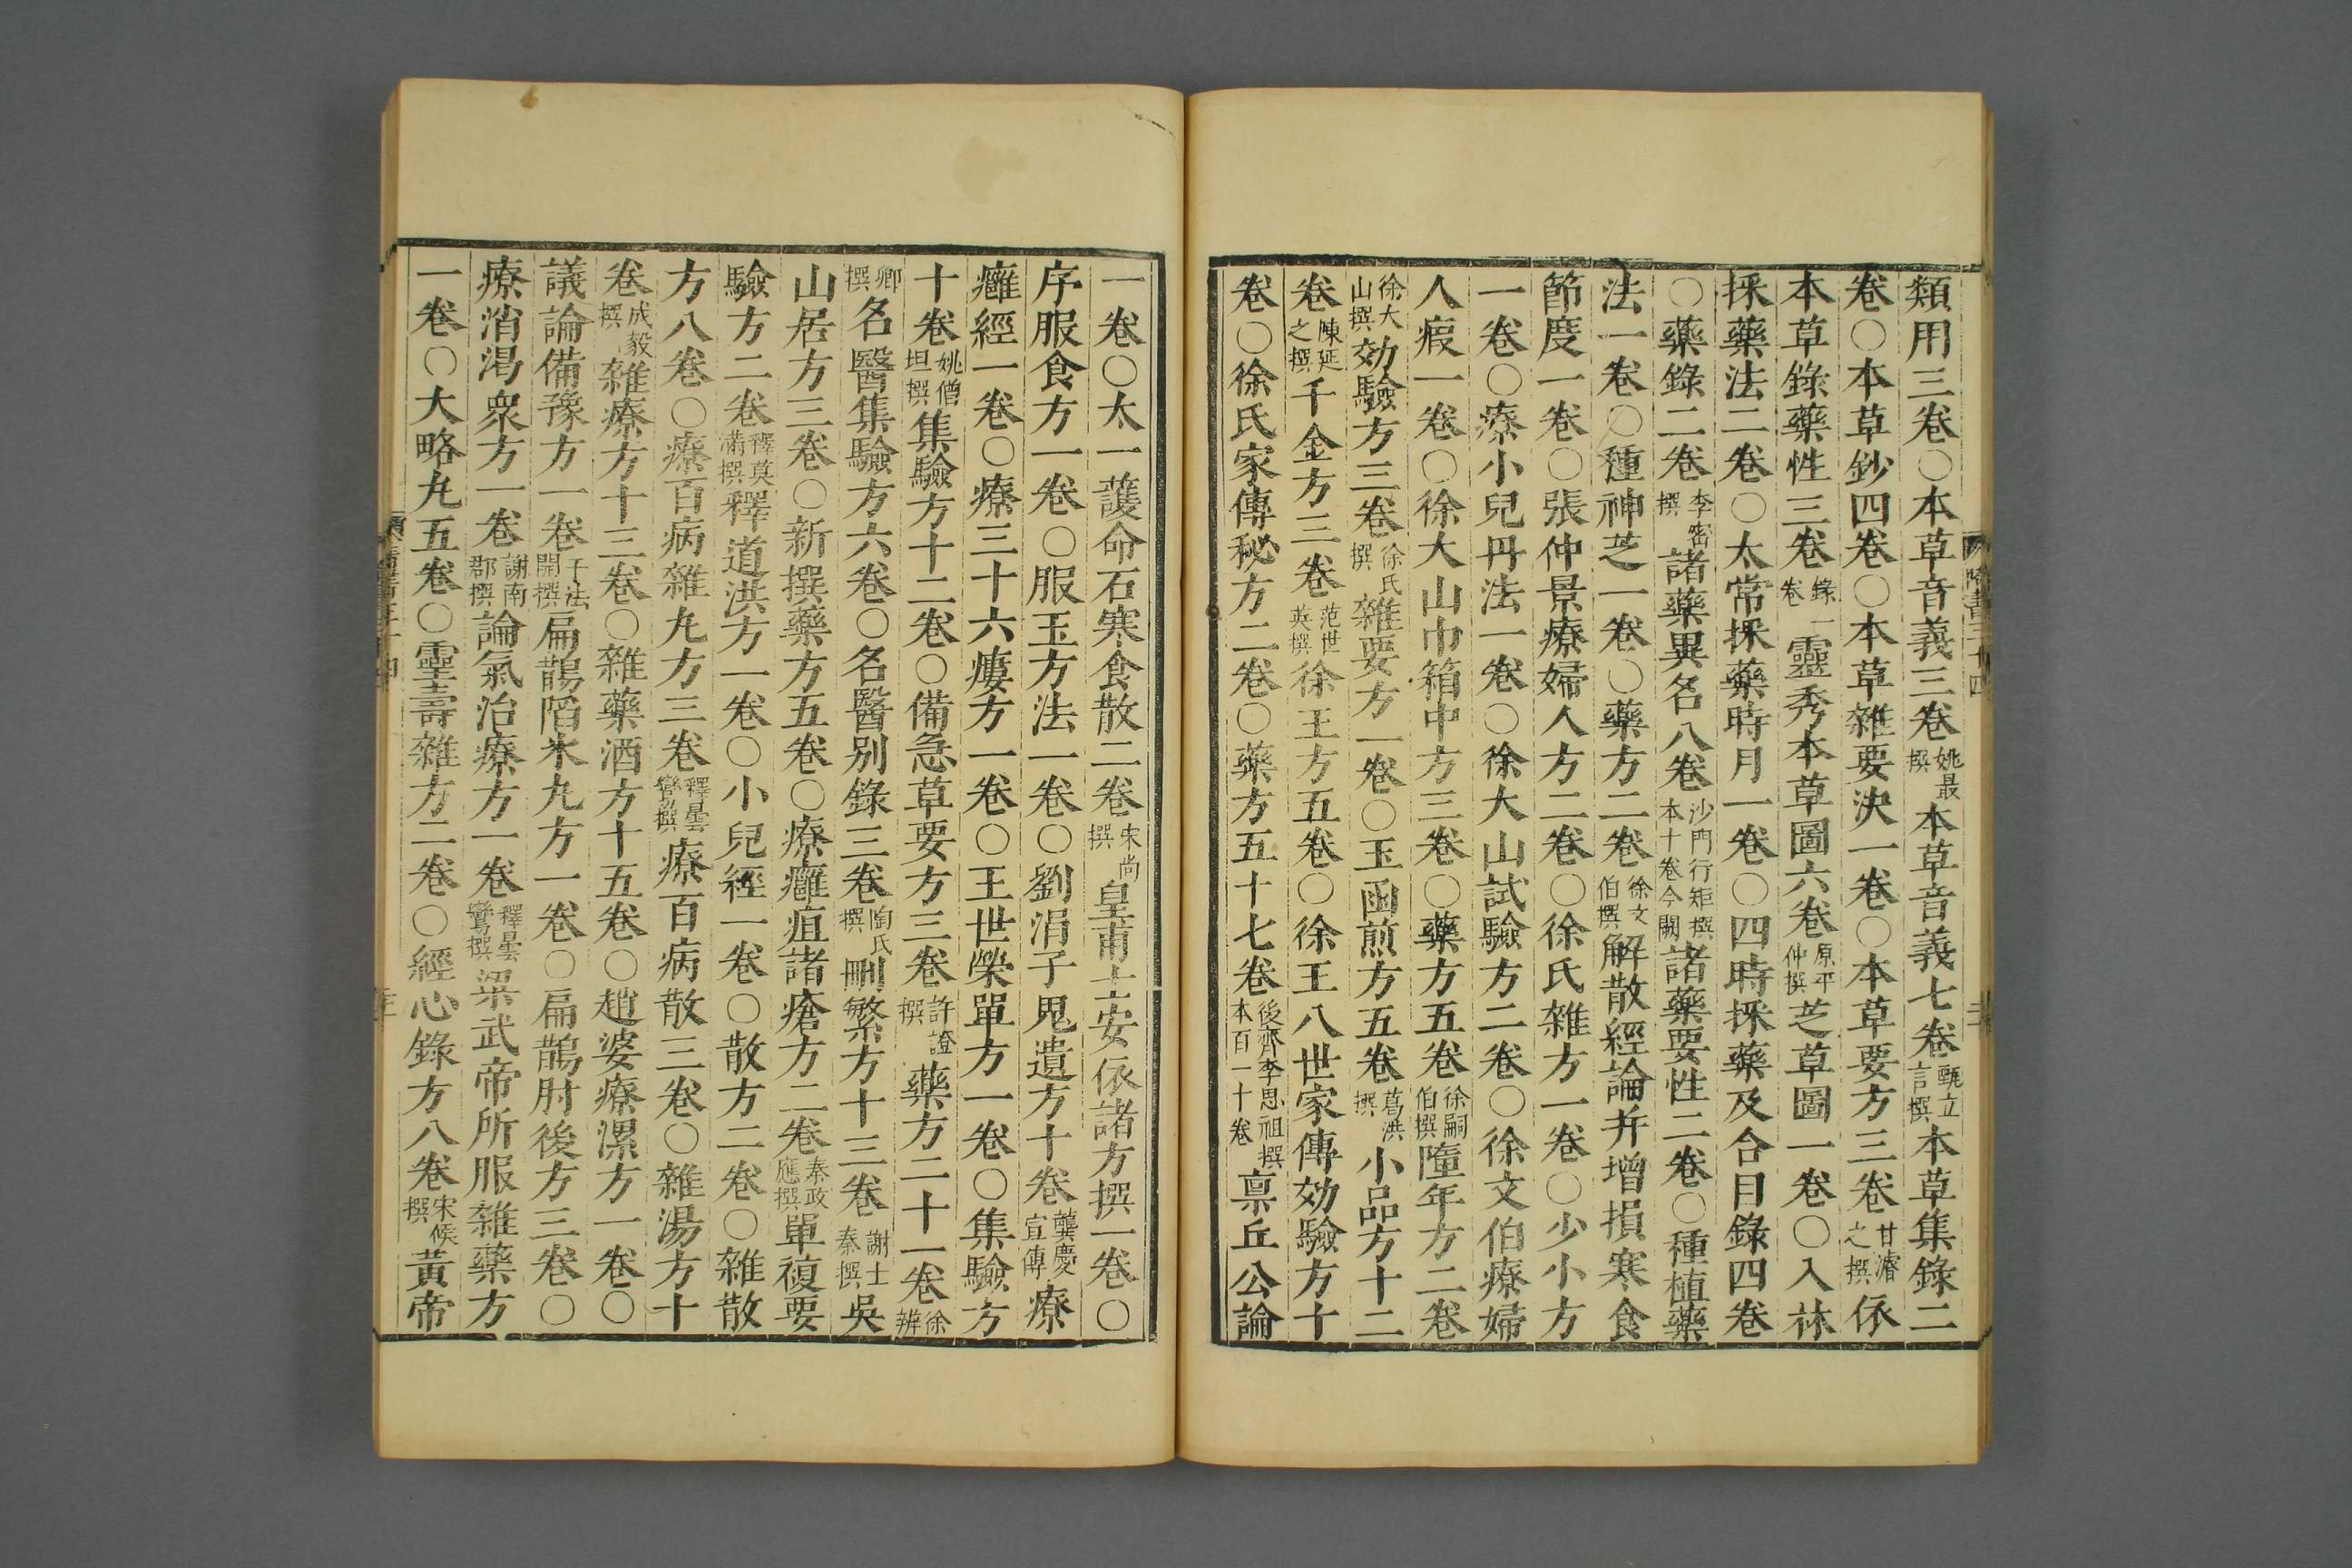 類用三卷○本草音義三卷姚最撰本草音義七卷甄立言撰本草集錄二
卷○本草鈔四卷○本草雜要决一卷○本草要方三卷甘濬之撰依
本草錄藥性三卷錄一卷靈秀本草圖六卷原平仲撰芝草圖一卷○入林
採藥法二卷○太常採藥時月一卷○四時採藥及合目錄四卷
○藥錄二卷李密撰諸藥異名八卷沙門行矩撰本十卷今闕諸藥要性二卷○種植藥
法一卷○種神芝一卷○藥方二卷徐文伯撰解散經論并增損寒食
節度一卷○張仲景療婦人方二卷○徐氏雜方一卷○少小方
一卷○療小兒丹法一卷○徐大山試驗方二卷○徐文伯療婦
人瘕一卷○徐大山巾箱中方三卷○藥方五卷徐嗣伯撰墮年方二卷
徐大山撰効驗方三卷徐氏撰雜要方一卷○玉函煎方五卷葛洪撰小品方十二
卷陳延之撰千金方三卷范世英撰徐王方五卷○徐王八世家傳効驗方十
卷○徐氏家傳秘方二卷○藥方五十七卷後齊李思祖撰本百一十卷稟丘公論
一卷○太一護命石寒食散二卷宋尚撰皇甫士安依諸方撰一卷○
序服食方一卷○服玉方法一卷○劉涓子鬼遺方十卷龔慶宣傳療
癰經一卷○療三十六瘻方一卷○王世榮單方一卷○集驗方
十卷姚僧坦撰集驗方十二卷○備急草要方三卷許證撰藥方二十一卷徐辨
卿撰名醫集驗方六卷○名醫別錄三卷陶氏撰刪繁方十三卷謝士秦撰吳
山居方三卷○新撰藥方五卷○療癰疽諸瘡方二卷秦政應撰單複要
驗方二卷釋莫滿撰釋道洪方一卷○小兒經一卷○散方二卷○雜散
方八卷○療百病雜丸方三卷釋曇鸞撰療百病散三卷○雜湯方十
卷成毅撰雜療方十三卷○雜藥酒方十五卷○趙婆療漯方一卷○
議論備豫方一卷于法開撰扁鵲陷氷丸方一卷○扁鵲肘後方三卷○
療消渴衆方一卷謝南郡撰論氣治療方一卷釋曇鸞撰梁武帝所服雜藥方
一卷○大略丸五卷○靈壽雜方二卷○經心錄方八卷宋候撰黃帝